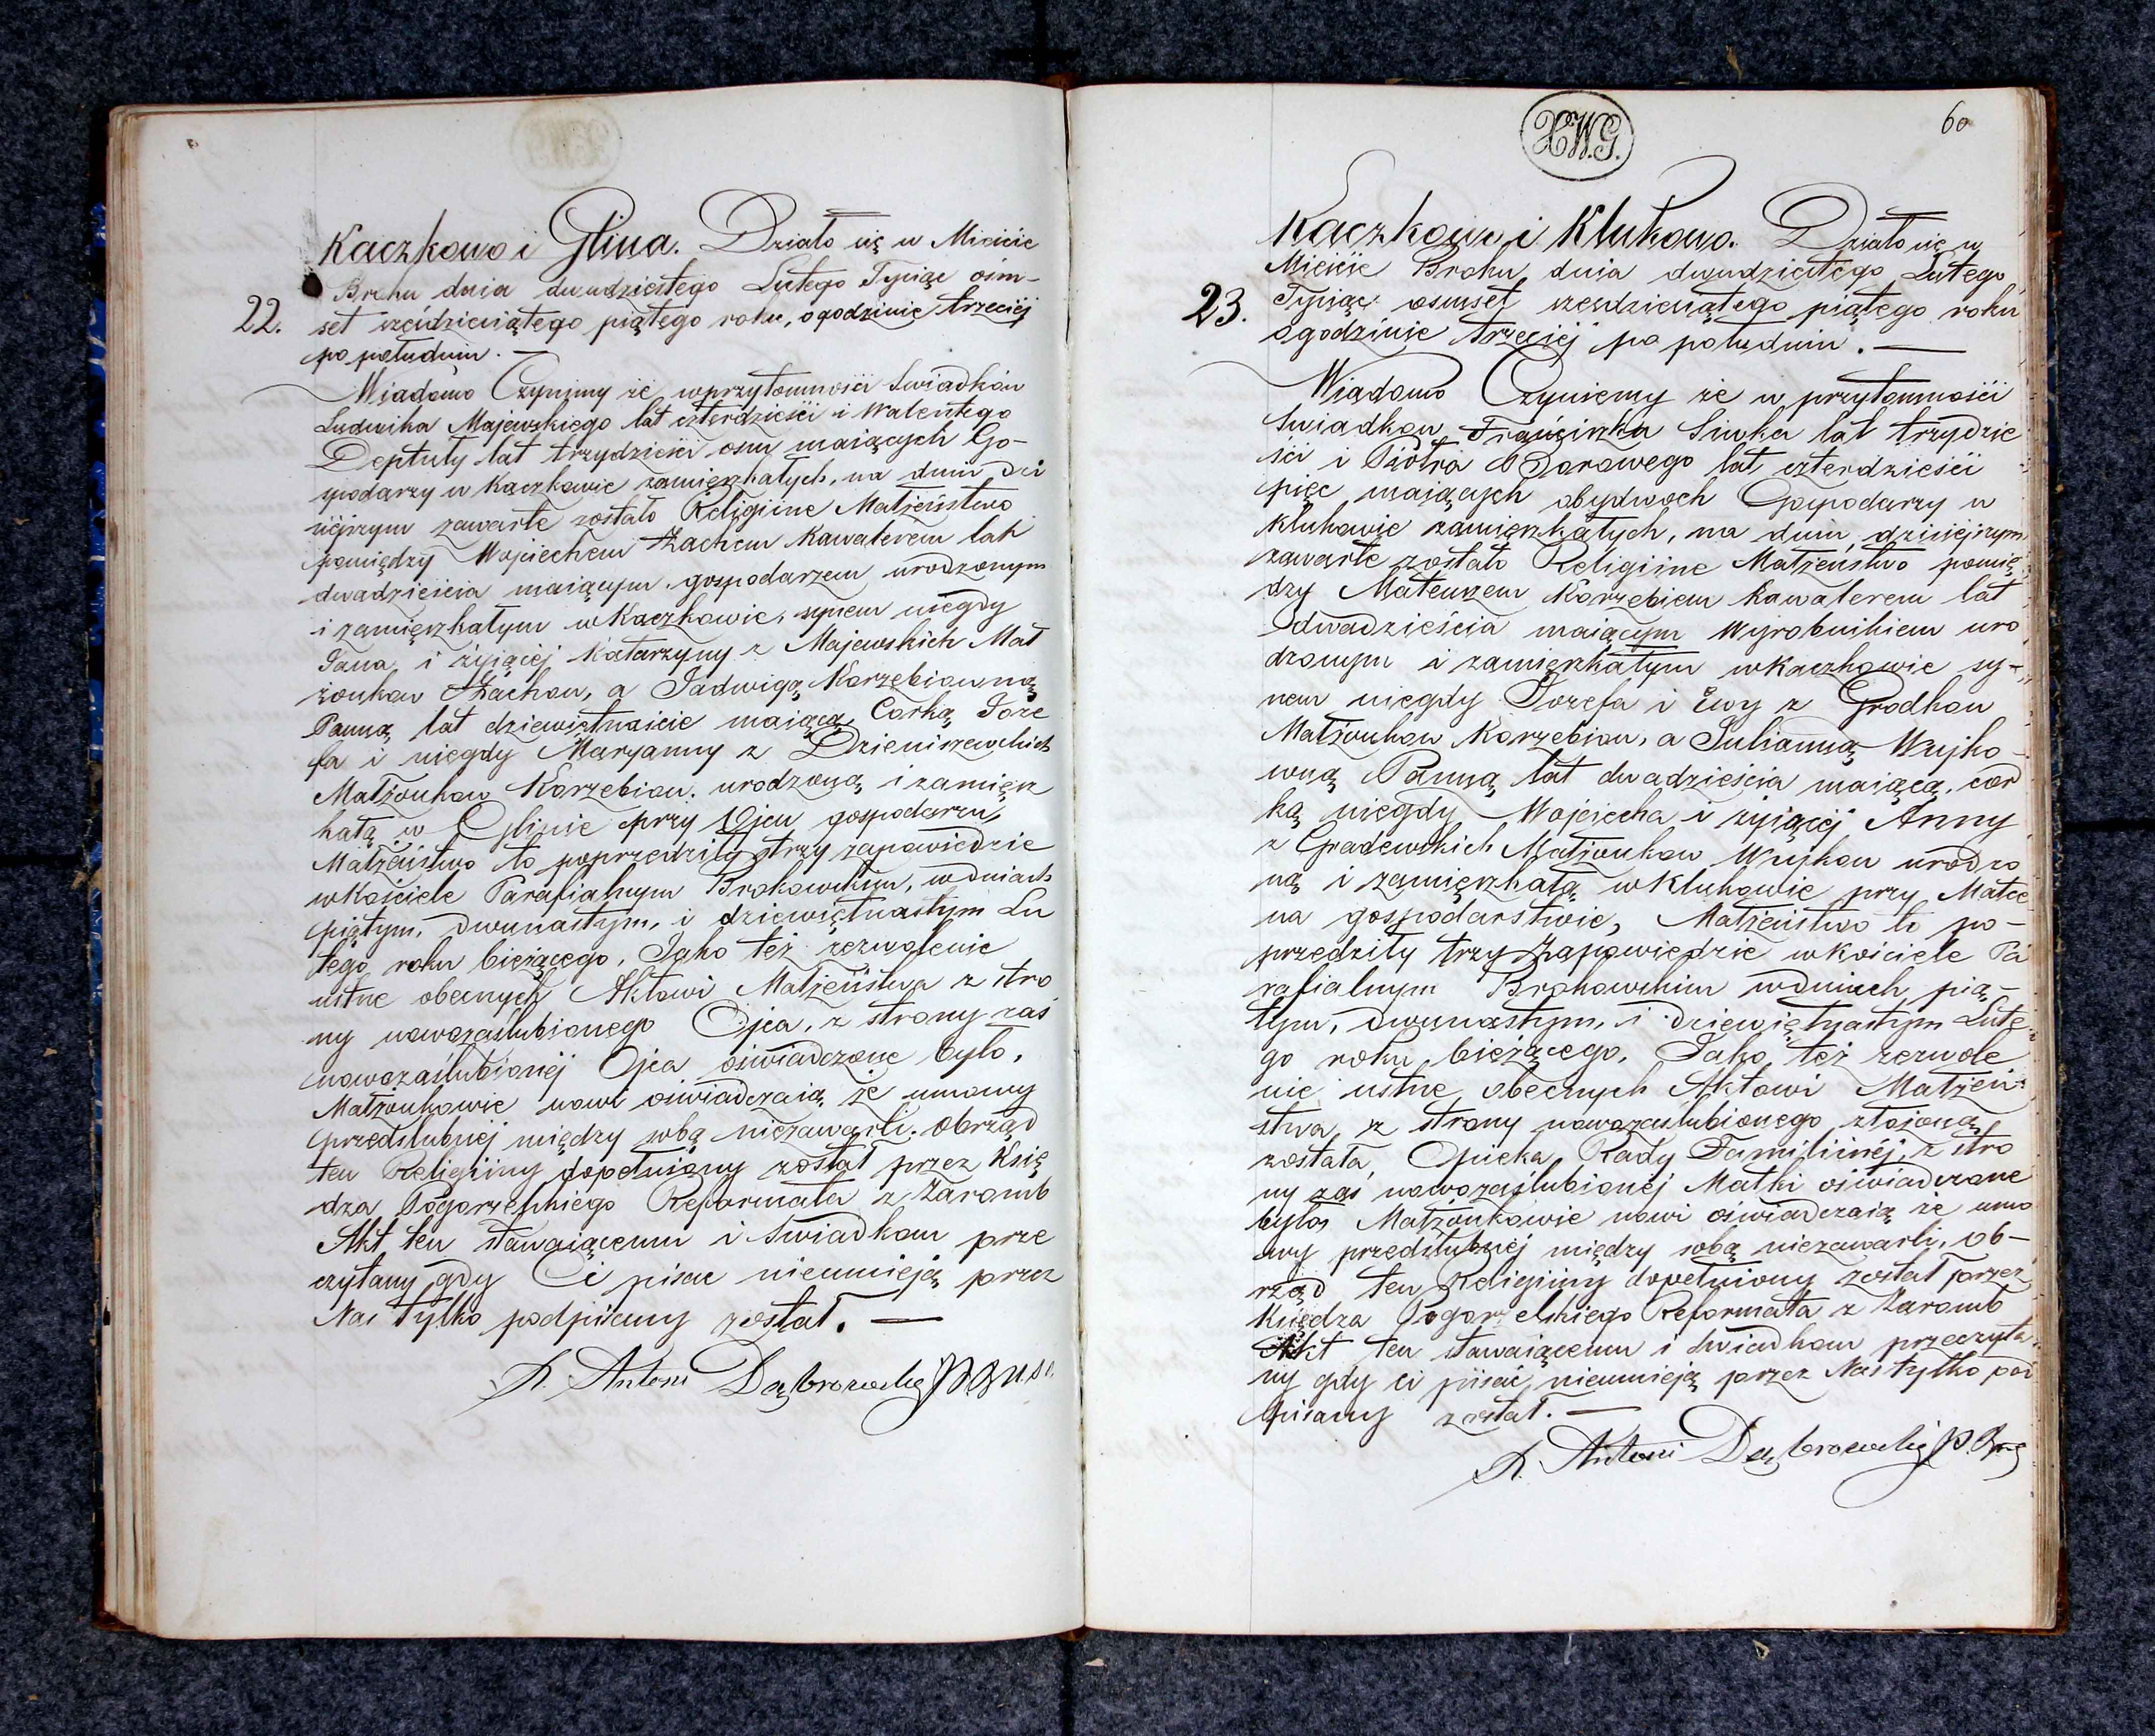 Kaczkowo i Glina. Działo się w Mieście
Broku dnia dwudziestego Lutego Tysiąc ośm-
22. set sześćdziesiątego piątego roku, o godzinie trzeciéj
po południu. —
Wiadomo Czynimy że w przytomności Swiadków
Ludwika Majewskiego lat czterdzieści i Walentego
Deptuły lat trzydzieści osm maiących Go-
spodarzy w Kaczkowie zamięszkałych, na dniu dzi
siéjszym zawarte zostało Religiine Małżeństwo
pomiędzy Wojciechem Żachem Kawalerem lat
dwadzieścia maiącym gospodarzem urodzonym
i zamięszkałym w Kaczkowie, synem niegdy
Jana i żyiącéj Katarzyny z Majewskich Mał
żonkow Żachow, a Jadwigą Korzebiowną
Panną lat dziewiętnaście maiącą Corką Joze
fa i niegdy Maryanny z Dzieniszewskich
Małżonkow Korzebiow. urodzoną i zamięsz
kałą w Glinie przy Ojcu gospodarzu,
Małżeństwo to poprzedziły trzy zapowiedzie
w Kościele Parafialnym Brokowskim, w dniach
piątym, dwunastym, i dziewiętnastym Lu
tego roku bieżącego. Jako też zezwolenie
ustne obecnych Aktowi Małżeństwa z stro
ny nowozaslubionego Ojca, z strony zaś
nowozaślubionéj Ojca oświadczone było.
Małżonkowie nowi oświadczaią że umowy
przedślubnéj między sobą niezawarli. Obrząd
ten Religiiny dopełniony został przez Xię
dza Pogorzelskiego Reformata z Zaromb
Akt ten stawaiącemu i Swiadkom prze
czytany gdy Ci pisac nieumieją przez
Nas tylko podpisany został. —
X. Antoni Dąbrowski
60
XWG.
Kaczkowo i Klukowo. Działo się w
Mieście Broku dnia dwudziestego Lutego
23. Tysiąc osmset sześdziesiątego piątego roku
o godzinie trzeciéj po południu. —
Wiadomo Czyniemy że w przytomności
Swiadkow Franciszka Siwka lat trzydzie
ści i Piotra Borowego lat czterdzieści
pięc maiących obydwoch Gospodarzy w
Klukowie zamięszkałych, na dniu dzisiejszym
zawarte zostało Religiine Małżeństwo pomię
dzy Mateuszem Korzebiem Kawalerem lat
dwadzieścia maiącym Wyrobnikiem uro
dzonym i zamięszkałym w Kaczkowie sy-
nem niegdy Jozefa i Ewy z Grodkow
Małżonkow Korzebiow, a Julianną Wujko
wną Panną lat dwadzieścia maiącą, cor
ką niegdy Wojciecha i żyiącéj Anny
z Gradowskich Małżonkow Wujkow urodzo
ną i zamięszkałą w Klukowie przy Matce
na gospodarstwie, Małżeństwo to po-
przedziły trzy Zapowiedzie w Kościele Pa
rafialnym Brokowskim w dniach pią-
tym, dwunastym, i dziewiętnastym Lute
go roku bieżącego. Jako też zezwole
nie ustne obecnych Aktowi Małżeń-
stwa, z strony nowozaslubionego złożoną
została, Opieka Rady Familiinéj, z stro
ny zaś nowozaślubionéj Matki oświadczone
było. Małżonkowie nowi oświadczaią że umo
wy przedslubnéj między sobą niezawarli, ob-
rząd ten Religiiny dopełniony został przez
Księdza Pogorzelskiego Reformata z Zaromb
Akt ten stawaiącemu i Swiadkom przeczyta
ny gdy ci pisać nieumieją przez Nas tylko pod
pisany został. —
X. Antoni Dąbrowski